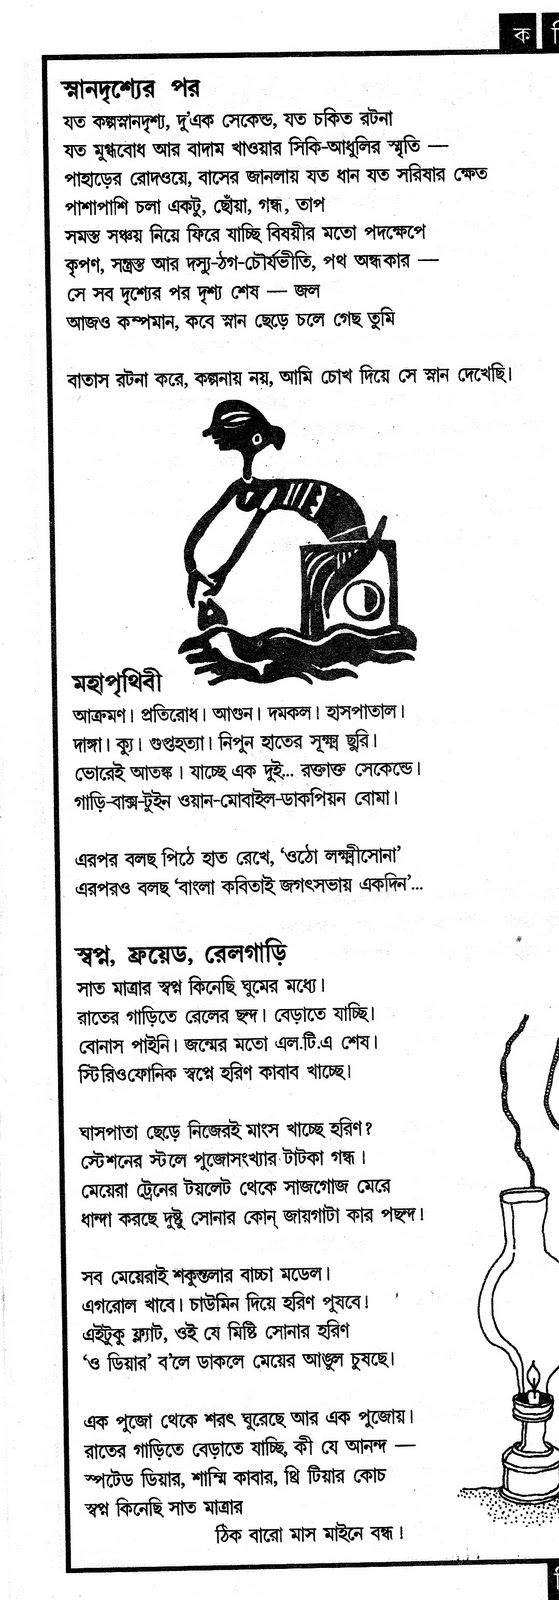 ক
স্নানদৃশ্যের পর
যত কল্পস্নানদৃশ্য, দু'এক সেকেন্ড, যত চকিত রটনা
যত মুগ্ধবোধ আর বাদাম খাওয়ার সিকি-আধুলির স্মৃতি —
পাহাড়ের রোদওয়ে, বাসের জানলায় যত ধান যত সরিষার ক্ষেত
পাশাপাশি চলা একটু, ছোঁয়া, গন্ধ, তাপ
সমস্ত সঞ্চয় নিয়ে ফিরে যাচ্ছি বিষয়ীর মতো পদক্ষেপে
কৃপণ, সন্ত্রস্ত আর দস্যু-ঠগ-চৌর্যভীতি, পথ অন্ধকার —
সে সব দৃশ্যের পর দৃশ্য শেষ — জল
আজও কম্পমান, কবে স্নান ছেড়ে চলে গেছ তুমি
বাতাস রটনা করে, কল্পনায় নয়, আমি চোখ দিয়ে সে স্নান দেখেছি।
মহাপৃথিবী
আক্রমণ। প্রতিরোধ। আগুন। দমকল। হাসপাতাল।
দাঙ্গা। ক্যু। গুপ্তহত্যা। নিপুন হাতের সূক্ষ্ম ছুরি।
ভোরেই আতঙ্ক। যাচ্ছে এক দুই... রক্তাক্ত সেকেন্ডে।
গাড়ি-বাক্স-টুইন ওয়ান-মোবাইল-ডাকপিয়ন বোমা।
এরপর বলছ পিঠে হাত রেখে, 'ওঠো লক্ষ্মীসোনা'
এরপরও বলছ 'বাংলা কবিতাই জগৎসভায় একদিন'...
স্বপ্ন, ফ্রয়েড, রেলগাড়ি
সাত মাত্রার স্বপ্ন কিনেছি ঘুমের মধ্যে।
রাতের গাড়িতে রেলের ছন্দ। বেড়াতে যাচ্ছি।
বোনাস পাইনি। জন্মের মতো এল.টি.এ শেষ।
স্টিরিওফোনিক স্বপ্নে হরিণ কাবাব খাচ্ছে।
ঘাসপাতা ছেড়ে নিজেরই মাংস খাচ্ছে হরিণ?
স্টেশনের স্টলে পুজোসংখ্যার টাটকা গন্ধ।
মেয়েরা ট্রেনের টয়লেট থেকে সাজগোজ মেরে
ধান্দা করছে দুষ্টু সোনার কোন্ জায়গাটা কার পছন্দ!
সব মেয়েরাই শকুন্তলার বাচ্চা মডেল।
এগরোল খাবে। চাউমিন দিয়ে হরিণ পুষবে!
এইটুকু ফ্ল্যাট, ওই যে মিষ্টি সোনার হরিণ
'ও ডিয়ার' ব'লে ডাকলে মেয়ের আঙুল চুষছে।
এক পুজো থেকে শরৎ ঘুরেছে আর এক পুজোয়।
রাতের গাড়িতে বেড়াতে যাচ্ছি, কী যে আনন্দ —
স্পটেড ডিয়ার, শাম্মি কাবার, থ্রি টিয়ার কোচ
স্বপ্ন কিনেছি সাত মাত্রার
ঠিক বারো মাস মাইনে বন্ধ!